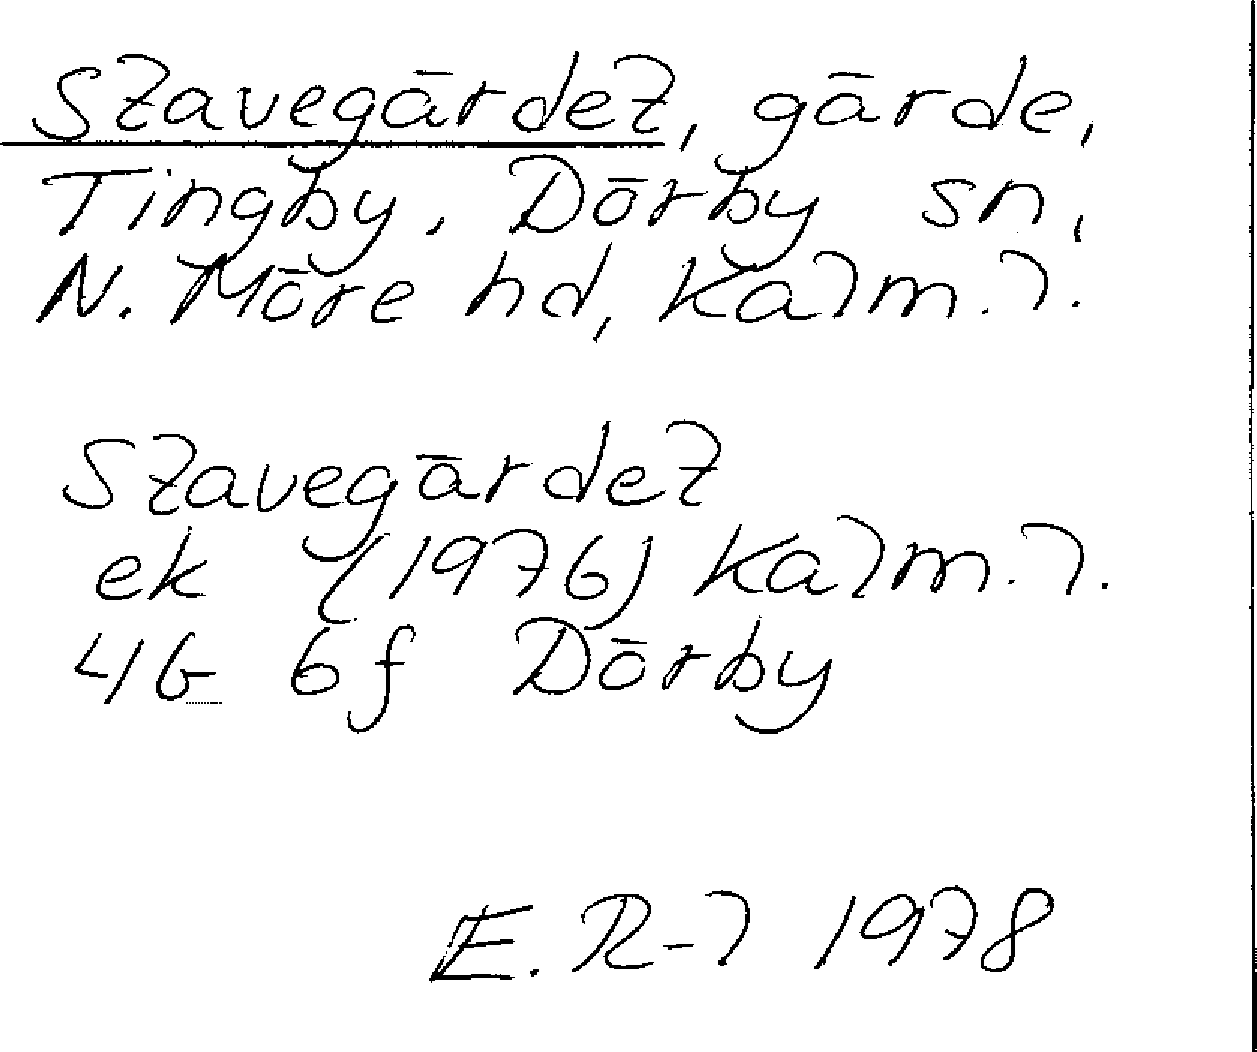 Stavegärdet, gärde,
Tingby, Dörby sn,
N. Möre hd, Kalm. l.
Stavegärdet
ek (1976) Kalm. l.
4G 6f Dörby
E. R-l 1978